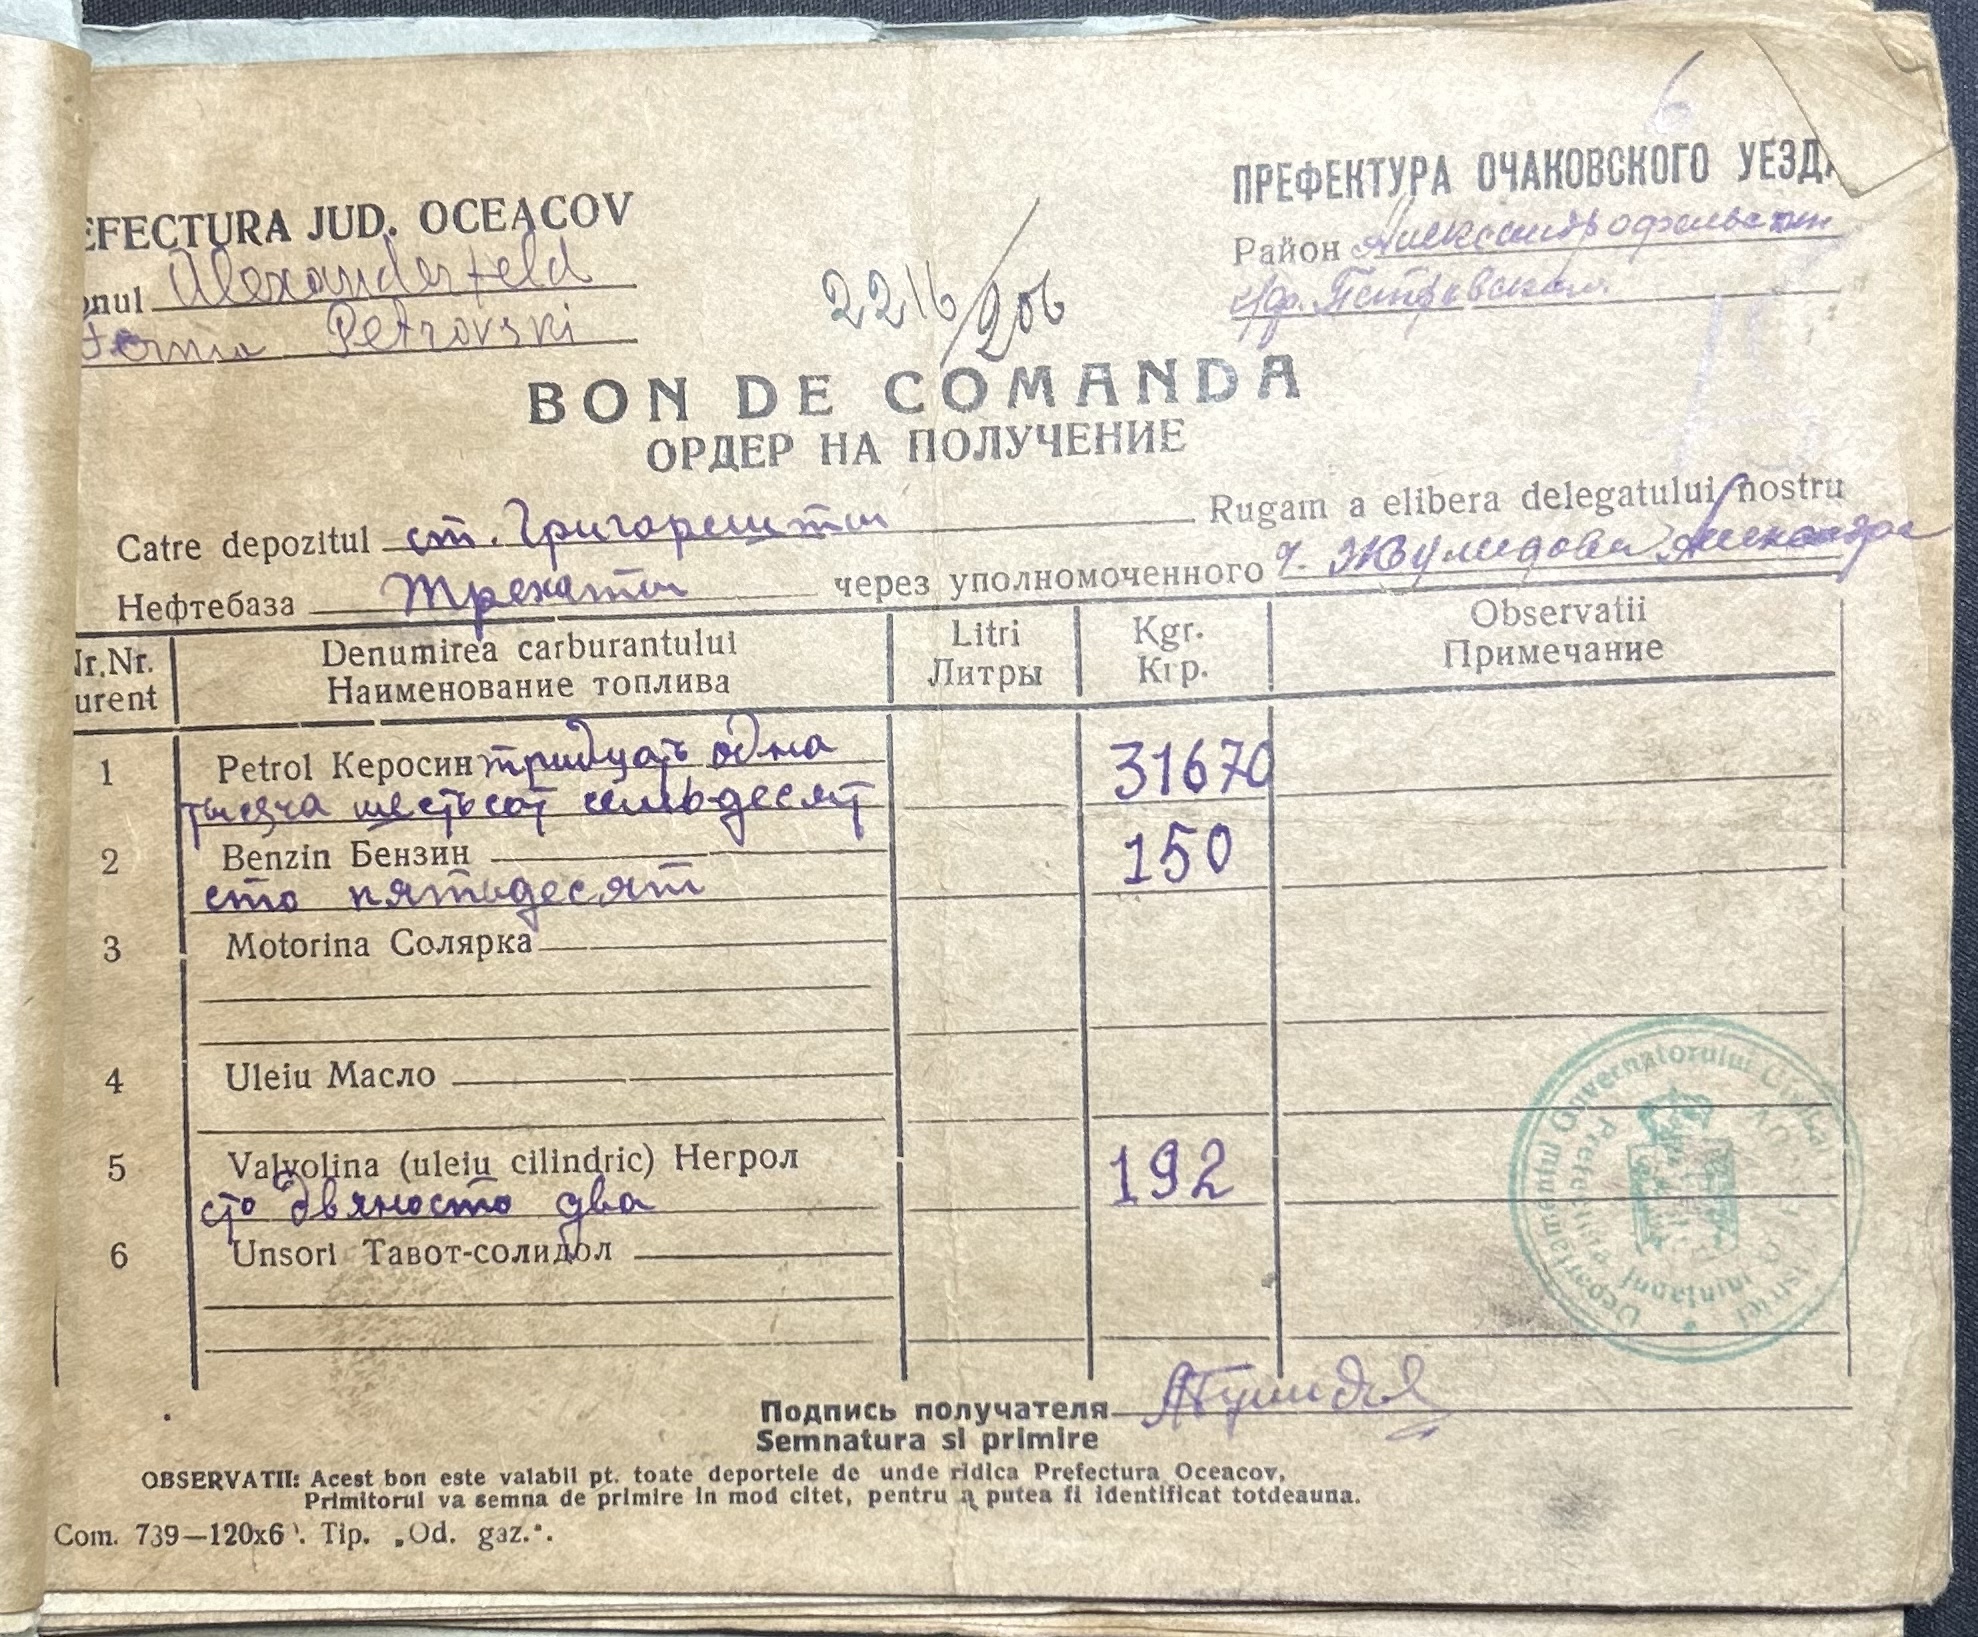 6
EFECTURA JUD. OCEACOV
ПРЕФЕКТУРА ОЧАКОВСКОГО УЕЗД
onul Alexanderfeld
Район Александрофельский
Ferma Petrovski
Петровская
22 16/206
BON DE COMANDA
ОРДЕР НА ПОЛУЧЕНИЕ
Catre depozitul ст. Григорешти Rugam a elibera delegatului nostru
Нефтебаза Трехаты через уполномоченного
Nr.Nr. Denumirea carburantului Litri Kgr. Observatii
urent Наименование топлива Литры Кгр. Примечание
1 Petrol Керосин тридцать одна 31670
тысяча шестьсот семьдесят
2 Benzin Бензин 150
сто пятьдесят
3 Motorina Солярка
4 Uleiu Масло
5 Valvolina (uleiu cilindric) Негрол 192
сто двяносто два
6 Unsori Тавот-солидол
Departamentul Guvernatorului Civil al
Prefectura
Подпись получателя
Semnatura si primire
OBSERVATII: Acest bon este valabil pt. toate deportele de unde ridica Prefectura Oceacov,
Primitorul va semna de primire in mod citet, pentru a putea fi identificat totdeauna.
Com. 739—120x6 . Tip. „Od. gaz.".